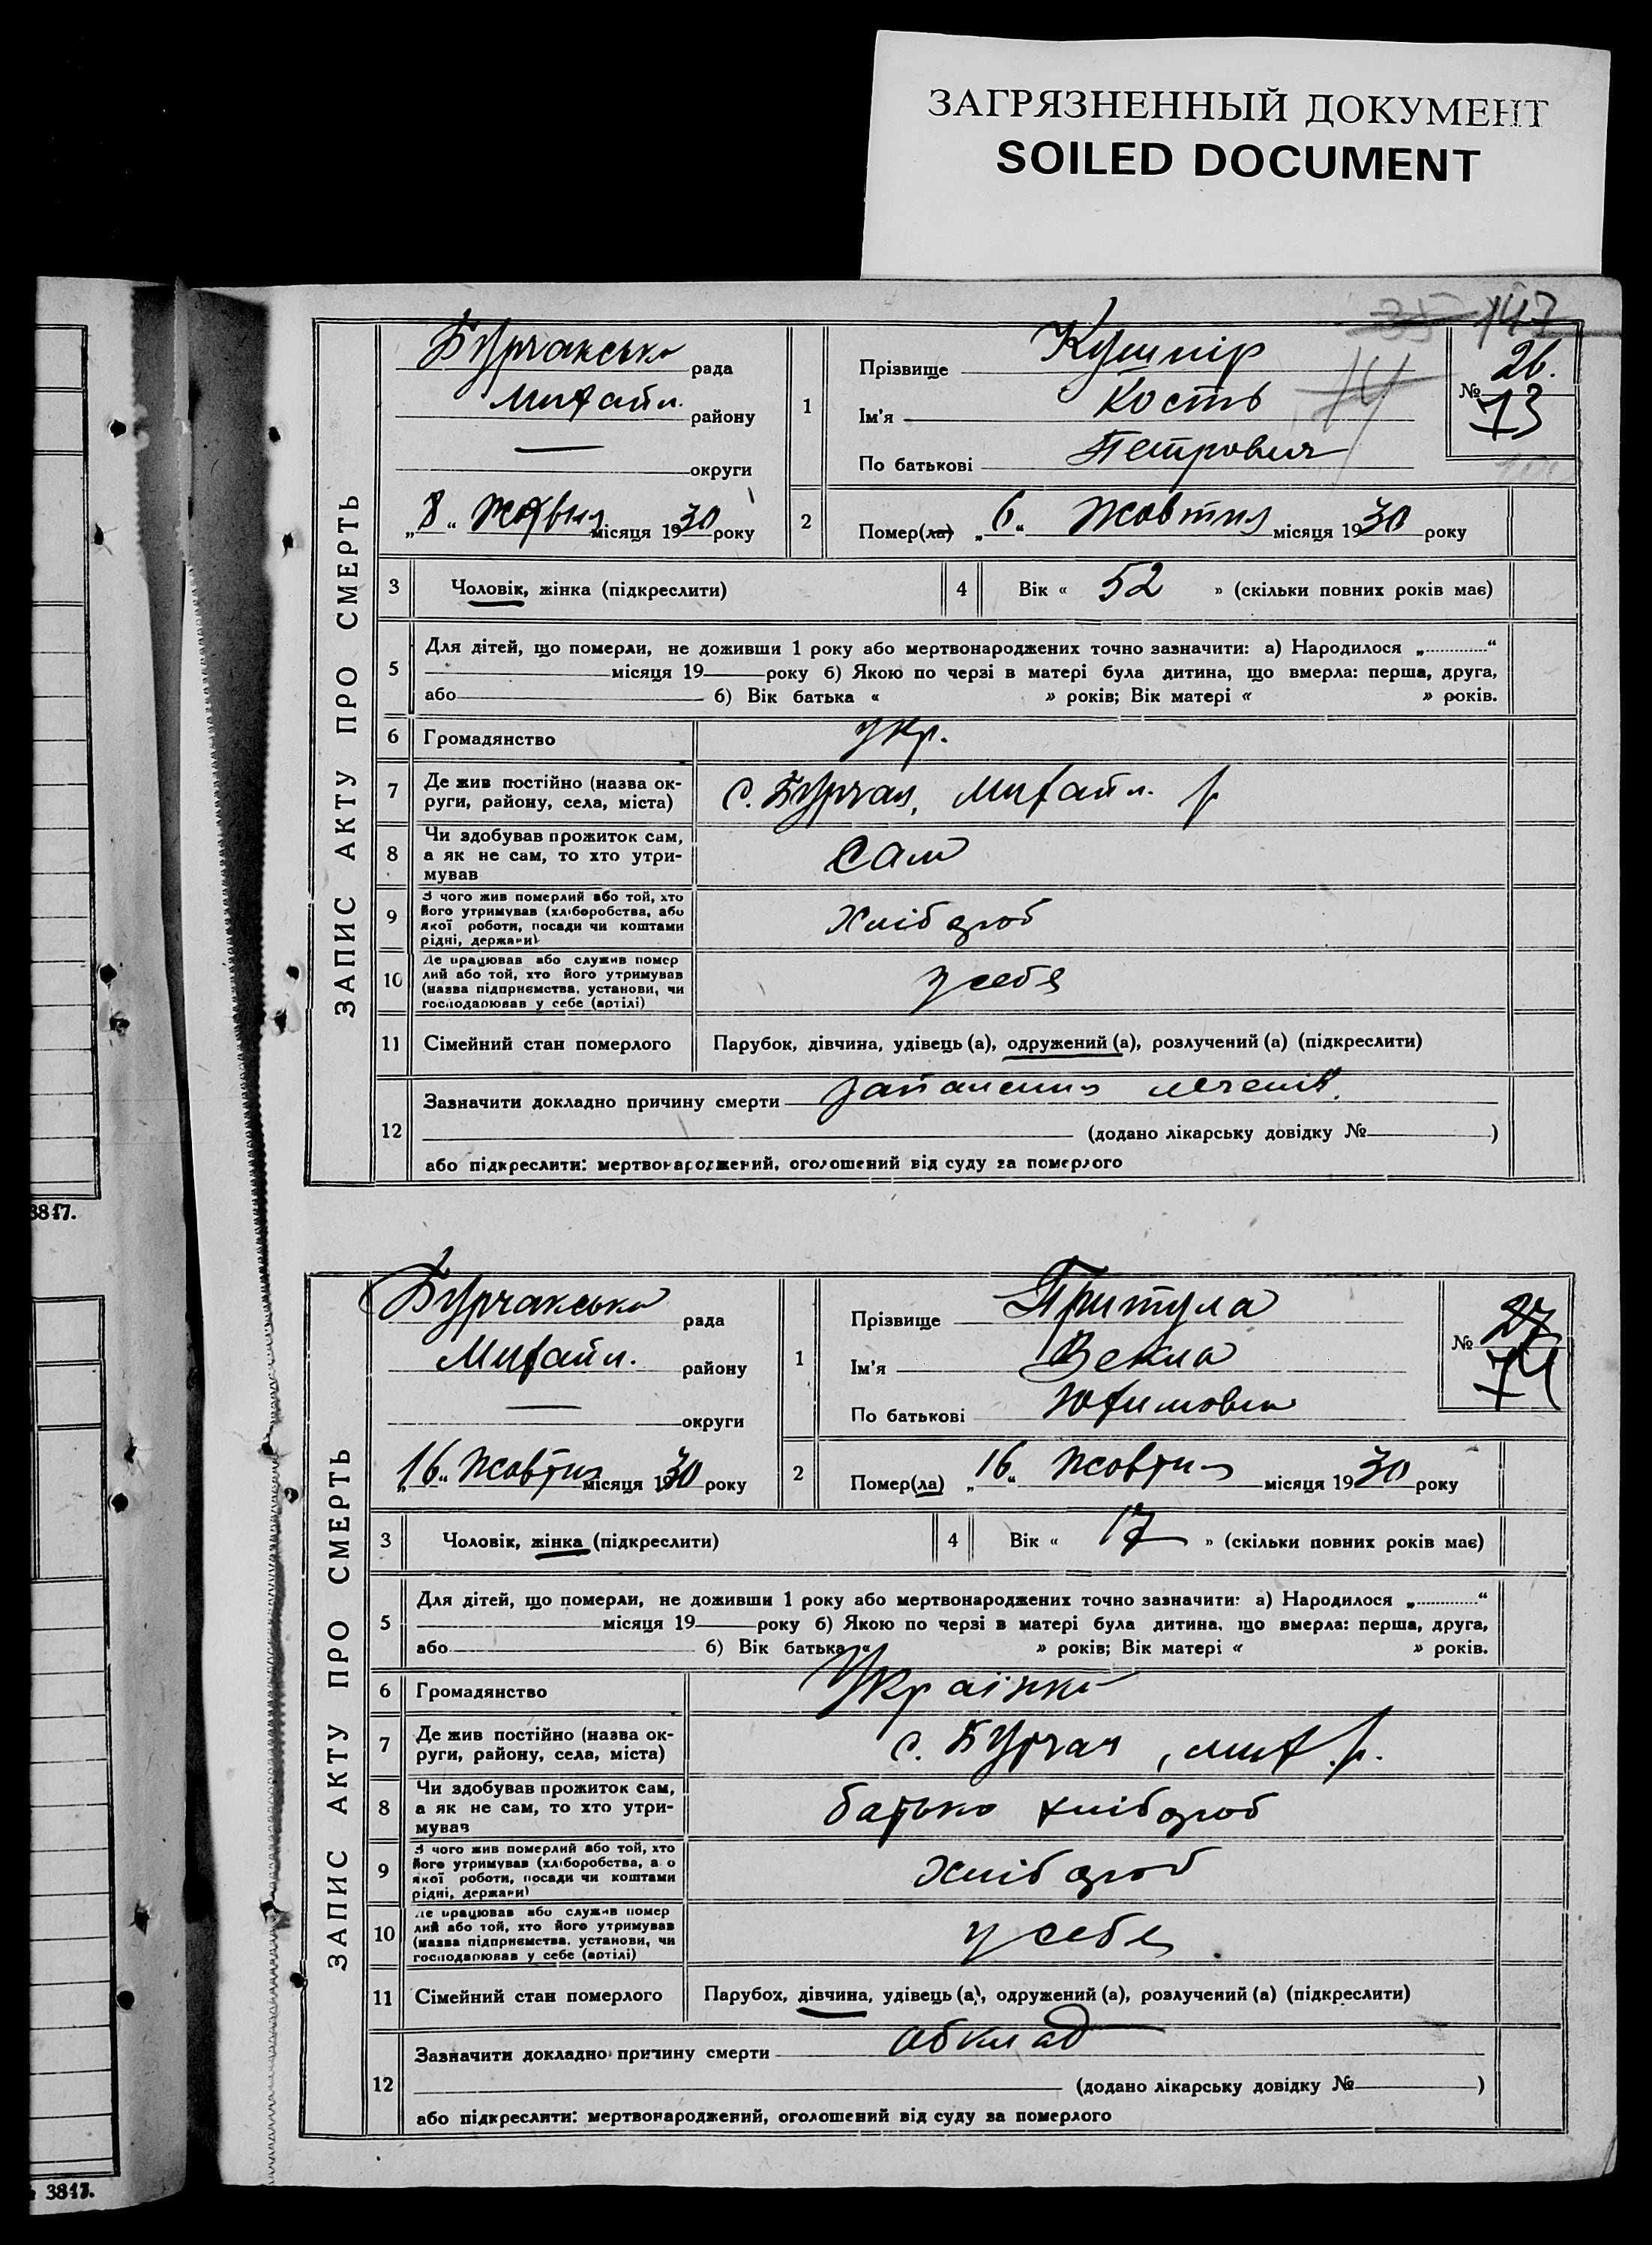 ЗАГРЯЗНЕННЫЙ ДОКУМЕНТ
SOILED DOCUMENT
35 147
ЗАПИС АКТУ ПРО СМЕРТЬ
Бурчакська рада
Михайл. району
округи
„8“ місяця 1930 року
1
Прізвище Кушнір
Ім'я Кость
По батькові Петрович
14
№ 26.
73
2
Помер(ла) „6“ Жовтня місяця 1930 року
3 Чоловік, жінка (підкреслити)
4 Вік « 52 » (скільки повних років має)
5 Для дітей, що померли, не доживши 1 року або мертвонароджених точно зазначити: а) Народилося „ “
місяця 19 року б) Якою по черзі в матері була дитина, що вмерла: перша, друга,
або б) Вік батька « » років; Вік матері « » років.
6 Громадянство укр.
7 Де жив постійно (назва ок-
руги, району, села, міста)
с. Бурчак, Михайл. р
8 Чи здобував прожиток сам,
а як не сам, то хто утри-
мував
сам
9 З чого жив померлий або той, хто
його утримував (хліборобства, або
якої роботи, посади чи коштами
рідні, держави)
Хлібороб
10 Де працював або служив помер
лий або той, хто його утримував
(назва підприємства, установи, чи
господарював у себе (артілі)
у себе
11 Сімейний стан померлого Парубок, дівчина, удівець (а), одружений (а), розлучений (а) (підкреслити)
12 Зазначити докладно причину смерти
(додано лікарську довідку № )
або підкреслити: мертвонароджений, оголошений від суду за померлого
3817.
ЗАПИС АКТУ ПРО СМЕРТЬ
Бурчакська рада
Михайл. району
округи
„16“ Жовтня місяця 1930 року
1
Прізвище Притула
Ім'я Векла
По батькові Юхимовна
№ 27
74
2
Помер(ла) „16“ Жовтня місяця 1930 року
3 Чоловік, жінка (підкреслити)
4 Вік « 17 » (скільки повних років має)
5 Для дітей, що померли, не доживши 1 року або мертвонароджених точно зазначити: а) Народилося „ “
місяця 19 року б) Якою по черзі в матері була дитина, що вмерла: перша, друга,
або б) Вік батька « » років; Вік матері « » років.
6 Громадянство Українка
7 Де жив постійно (назва ок-
руги, району, села, міста)
с. Бурчак, Мих. р.
8 Чи здобував прожиток сам,
а як не сам, то хто утри-
мував
батько хлібороб
9 З чого жив померлий або той, хто
його утримував (хліборобства, або
якої роботи, посади чи коштами
рідні, держави)
Хлібороб
10 Де працював або служив помер
лий або той, хто його утримував
(назва підприємства, установи, чи
господарював у себе (артілі)
у себе
11 Сімейний стан померлого Парубок, дівчина, удівець (а), одружений (а), розлучений (а) (підкреслити)
12 Зазначити докладно причину смерти обклад
(додано лікарську довідку № )
або підкреслити: мертвонароджений, оголошений від суду за померлого
3817.